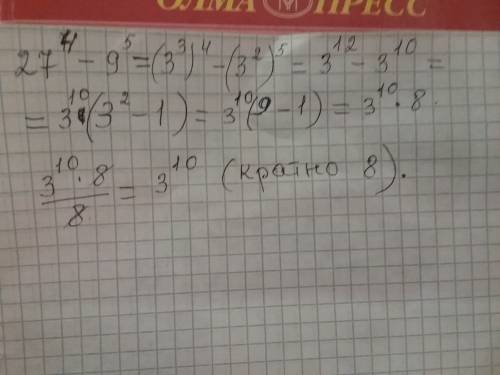 ОЛМА М ПРЕСС
27⁴ - 9⁵ = (3³)⁴ - (3²)⁵ = 3¹² - 3¹⁰ =
= 3¹⁰(3² - 1) = 3¹⁰(9 - 1) = 3¹⁰ · 8.
3¹⁰ · 8 / 8 = 3¹⁰ (кратно 8).